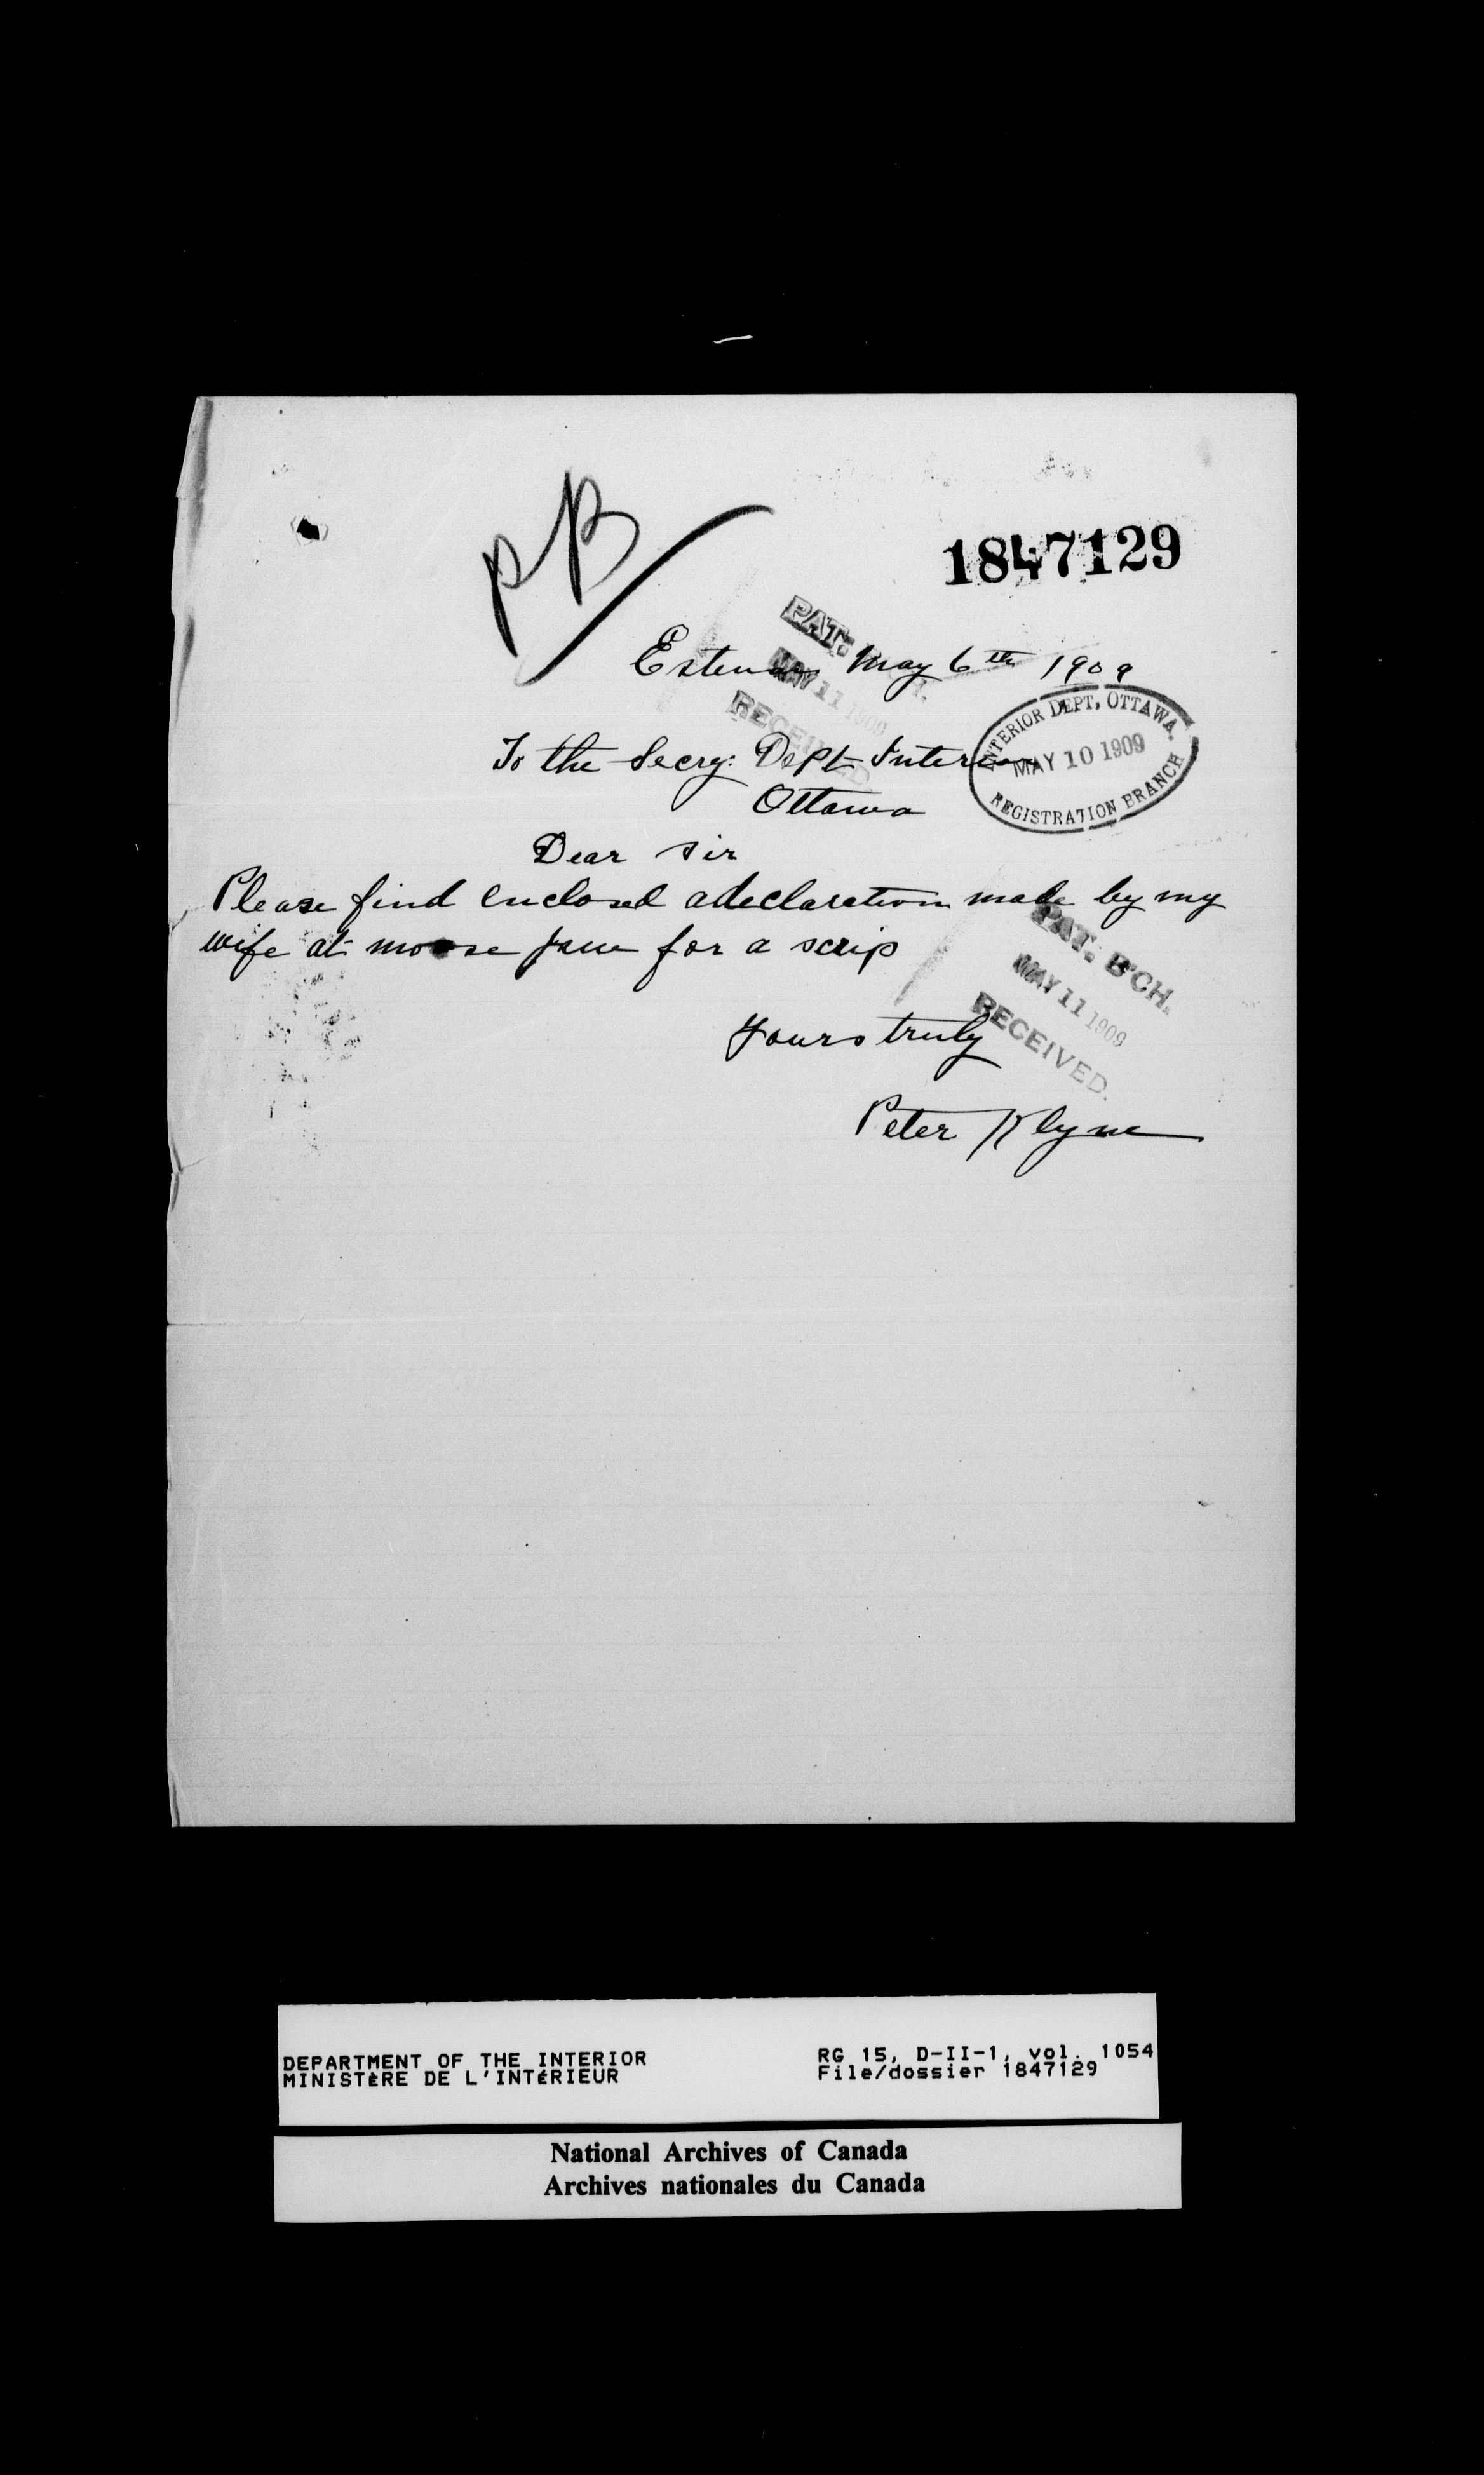 PB
1847129
PAT.
MAY 11 1909
RECEIVED
Estevan May 6th 1909
INTERIOR DEPT, OTTAWA.
MAY 10 1909
REGISTRATION BRANCH
To the Secry: Dept Interior
Ottawa
Dear Sir
Please find enclosed a declaration made by my
wife at moose jaw for a scrip
PAT. B'CH.
MAY 11 1909
RECEIVED.
Yours truly
Peter Klyne
DEPARTMENT OF THE INTERIOR
MINISTÈRE DE L'INTÉRIEUR
RG 15, D-II-1, vol. 1054
File/dossier 1847129
National Archives of Canada
Archives nationales du Canada